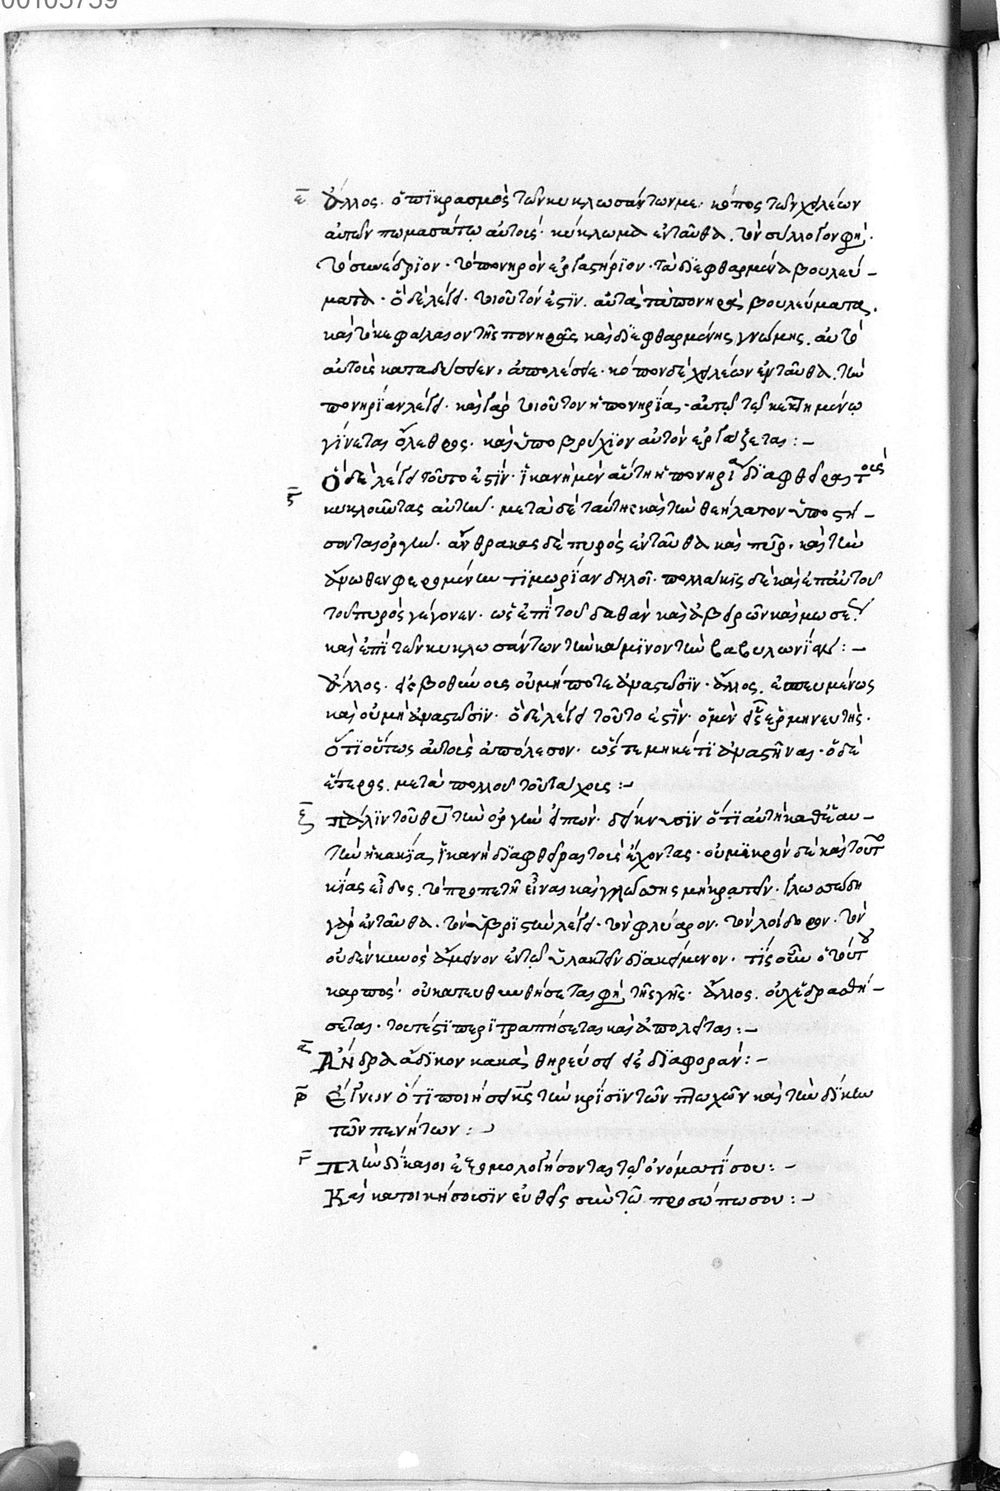 00105759
ε Ἄλλος. ὁ πικρασμὸς τῶν κυκλωσάντων με. κόπος τῶν χειλέων
αὐτῶν πωμασάτω αὐτούς. κύκλωμα ἐνταῦθα. τὸν σύλλογον φησί.
τὸ συνέδριον. τὸ πονηρὸν ἐργαστήριον. τὰ διεφθαρμένα βουλεύ-
ματα. ὃ δὲ λέγει. τοιοῦτόν ἐστιν. αὐτὰ τὰ πονηρὰ βουλεύματα.
καὶ τὸ κεφάλαιον τῆς πονηρᾶς καὶ διεφθαρμένης γνώμης. αὐτὸ
αὐτοὺς καταδύσειεν, ἀπολέσειε. κόπον δὲ χειλέων ἐνταῦθα. τὴν
πονηρίαν λέγει. καὶ γὰρ τοιοῦτον ἡ πονηρία. αὐτῷ τῷ κεκτημένῳ
γίνεται ὄλεθρος. καὶ ὑποβρύχιον αὐτὸν ἐργάζεται:-
ς Ὃ δὲ λέγει τοῦτό ἐστιν. ἱκανὴ μὲν αὕτη ἡ πονηρία διαφθεῖραι τοὺς
κυκλοῦντας αὐτήν. μετὰ δὲ ταύτης καὶ τὴν θεήλατον ὑποστή-
σονται ὀργήν. ἄνθρακας δὲ πυρὸς ἐνταῦθα καὶ πῦρ. καὶ τὴν
ἄνωθεν φερομένην τιμωρίαν δηλοῖ. πολλάκις δὲ καὶ ἐπ' αὐτοῦ
τοῦ πυρὸς γέγονεν. ὡς ἐπὶ τοῦ δαθὰν καὶ ἀβειρὼν καὶ μωσέως
καὶ ἐπὶ τῶν κυκλωσάντων τὴν κάμινον τὴν βαβυλωνίαν:-
Ἄλλος. εἰς βοθύνους οὐ μήποτε ἀναστῶσιν. ἄλλος. ἐσπευμένως
καὶ οὐ μὴ ἀναστῶσιν. ὃ δὲ λέγει τοῦτό ἐστιν. ὁ μὲν εἷς ἑρμηνευτής.
ὅτι οὕτως αὐτοὺς ἀπόλεσον. ὥστε μηκέτι ἀναστῆναι. ὁ δὲ
ἕτερος. μετὰ πολλοῦ τοῦ τάχους:-
ζ πάλιν τοῦ θεοῦ τὴν ὀργὴν εἰπών. δείκνυσιν ὅτι αὐτὴ καθ' ἑαυ-
τὴν ἡ κακία, ἱκανὴ διαφθεῖραι τοὺς ἔχοντας. οὐ μικρὸν δὲ καὶ τοῦτο
κακίας εἶδος. τὸ προπετῆ εἶναι καὶ γλώσσης μὴ κρατεῖν. γλωσσώδη
γὰρ ἐνταῦθα. τὸν ὑβριστὴν λέγει. τὸν φλύαρον. τὸν λοίδορον. τὸν
οὐδὲν κυνὸς ἄμεινον ἐν τῷ ὑλακτεῖν διακείμενον. τίς οὖν ὁ τούτου
καρπός. οὐ κατευθυνθήσεται φησὶ τῆς γῆς. ἄλλος. οὐχ ἑδρασθή-
σεται. τουτέστι περιτραπήσεται καὶ ἀπολεῖται:-
α Ἄνδρα ἄδικον κακὰ θηρεύσει εἰς διαφοράν:-
β Ἔγνων ὅτι ποιήσει κύριος τὴν κρίσιν τῶν πτωχῶν καὶ τὴν δίκην
τῶν πενήτων:-
γ πλὴν δίκαιοι ἐξομολογήσονται τῷ ὀνόματί σου:-
Καὶ κατοικήσουσιν εὐθεῖς σὺν τῷ προσώπῳ σου:-